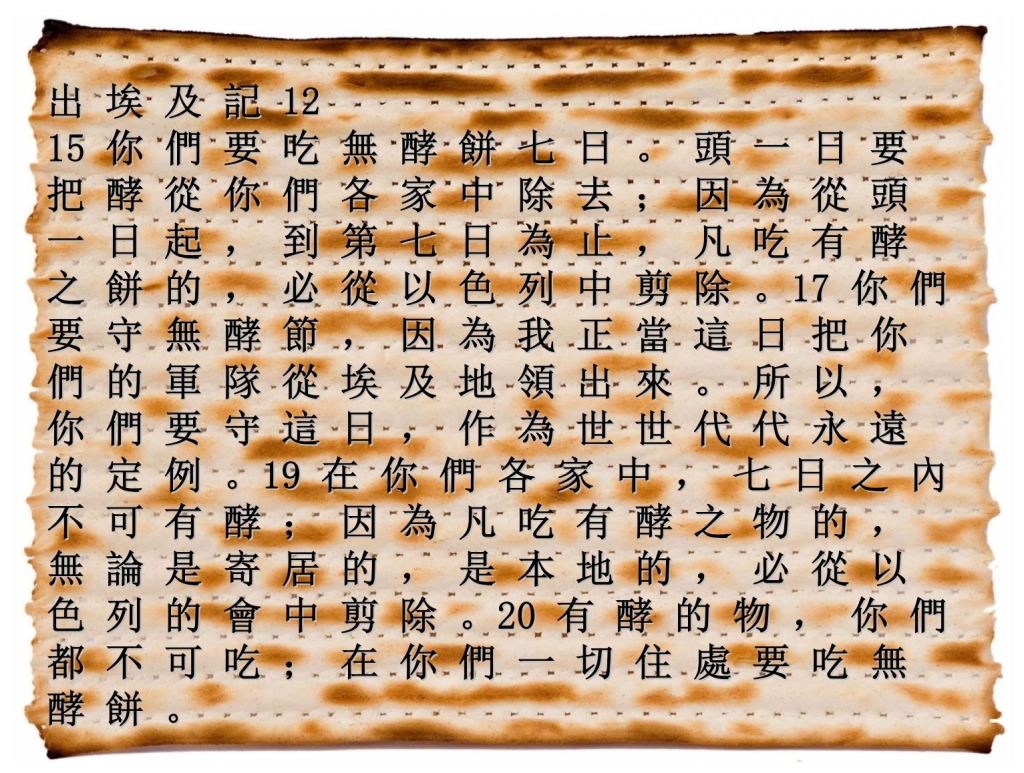 出埃及記12
15你們要吃無酵餅七日。頭一日要
把酵從你們各家中除去；因為從頭
一日起，到第七日為止，凡吃有酵
之餅的，必從以色列中剪除。17你們
要守無酵節，因為我正當這日把你
們的軍隊從埃及地領出來。所以，
你們要守這日，作為世世代代永遠
的定例。19在你們各家中，七日之內
不可有酵；因為凡吃有酵之物的，
無論是寄居的，是本地的，必從以
色列的會中剪除。20有酵的物，你們
都不可吃；在你們一切住處要吃無
酵餅。